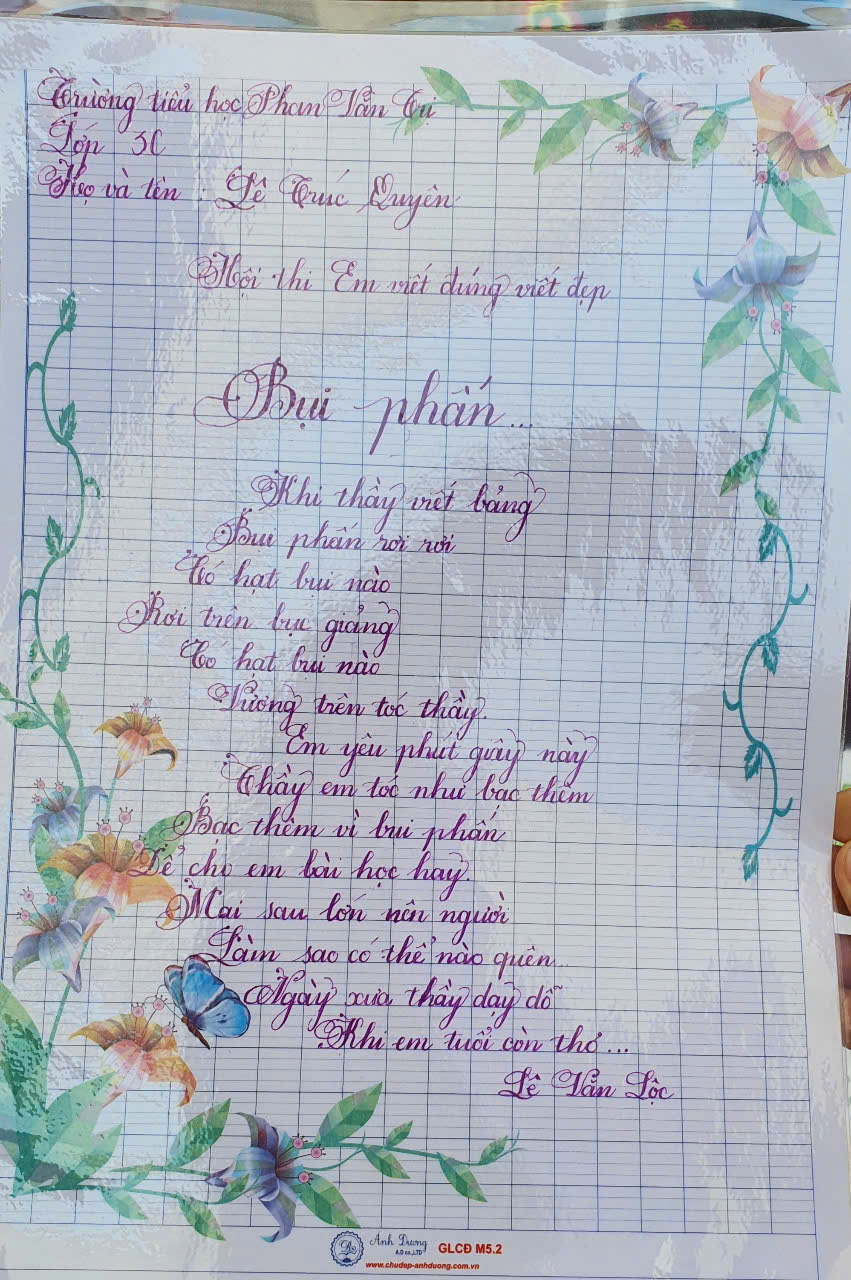 Trường tiểu học Phan Văn Trị
Lớp 3C
Họ và tên : Lê Trúc Quyên
Hội thi Em viết đúng viết đẹp
Bụi phấn...
Khi thầy viết bảng
Bụi phấn rơi rơi
Có hạt bụi nào
Rơi trên bục giảng
Có hạt bụi nào
Vương trên tóc thầy.
Em yêu phút giây này
Thầy em tóc như bạc thêm
Bạc thêm vì bụi phấn
Để cho em bài học hay.
Mai sau lớn nên người
Làm sao có thể nào quên...
Ngày xưa thầy dạy dỗ
Khi em tuổi còn thơ...
Lê Văn Lộc
Ánh Dương
A.D co.,LTD
GLCĐ M5.2
www.chudep-anhduong.com.vn